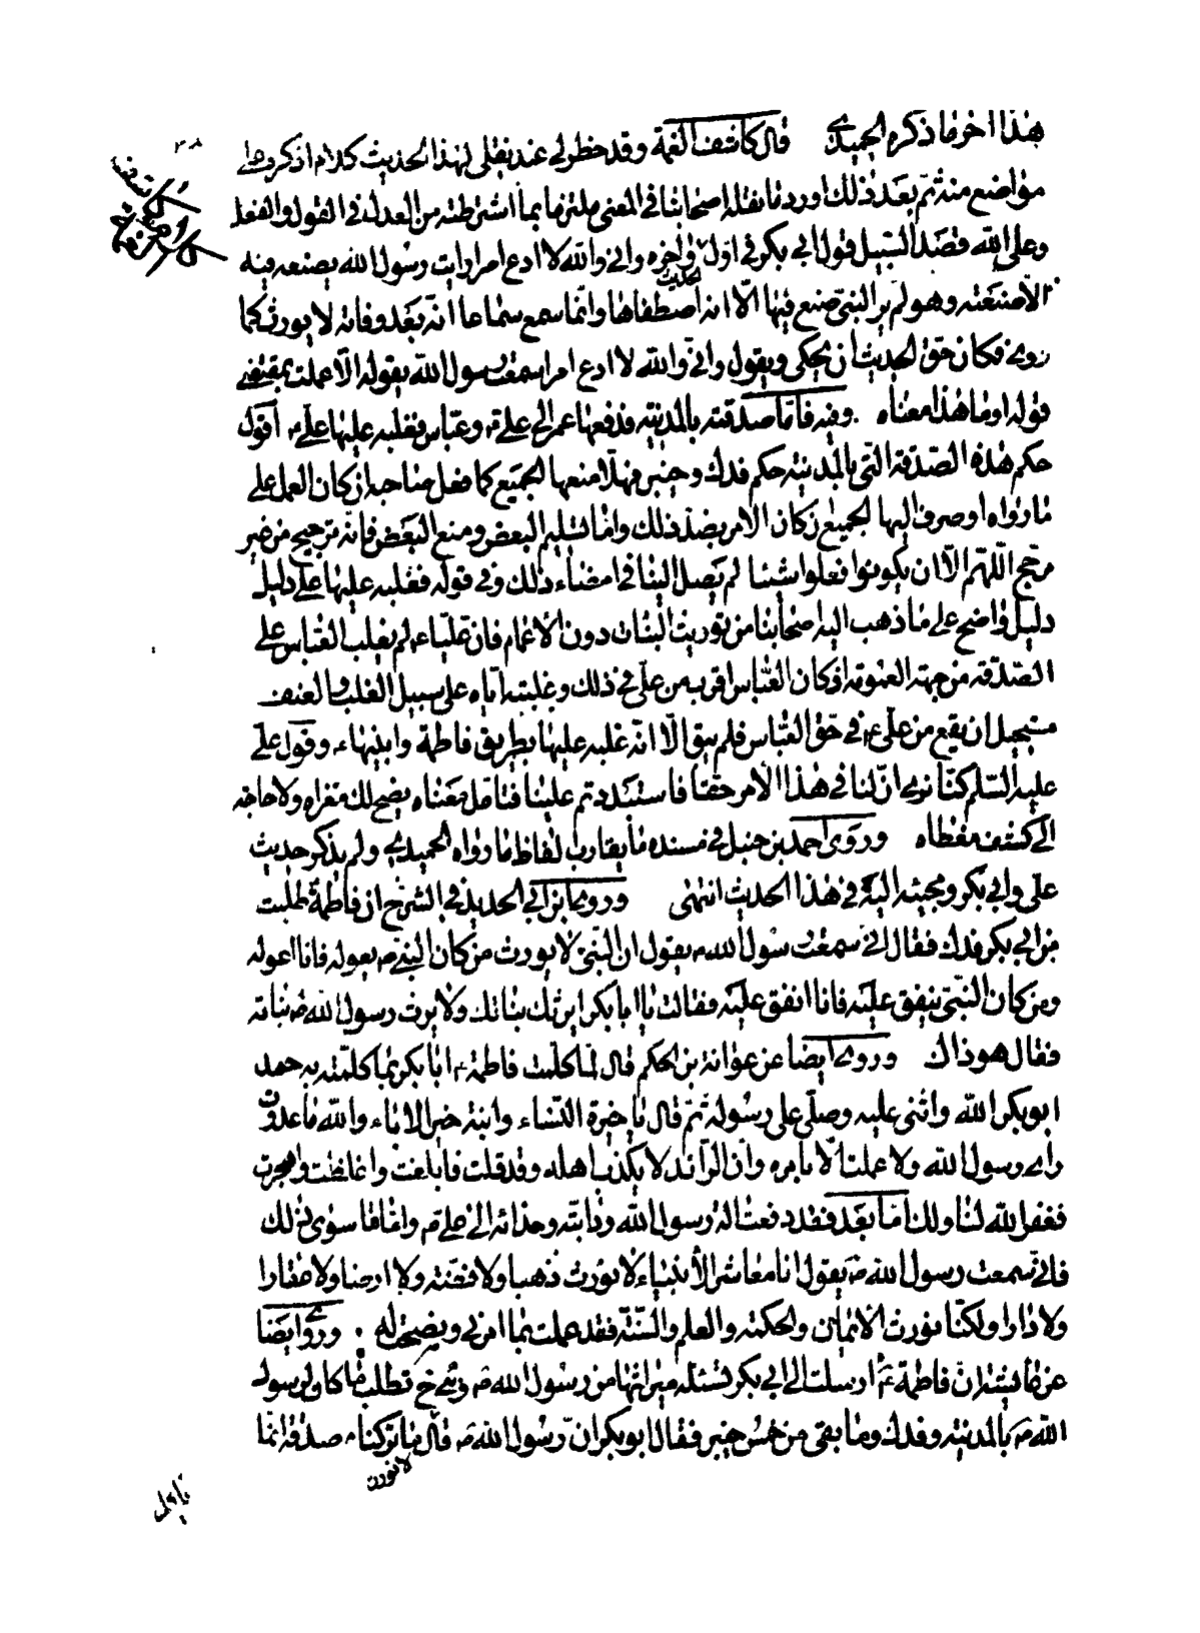 هذا اخر ما ذكره الحميدي قال كاشف الغمة وقد خطر لي عند نقلي لهذا الحديث كلام اذكره على
مواضع منه ثم بعد ذلك اورد ما نقله اصحابنا في المعنى ملتزما بما اشترطته من العدل في القول والفعل
وعلى الله قصد السبيل قول ابي بكر في اول الحديث واخره واني والله لا ادع امرا رايت رسول الله يصنعه فيه
الا صنعته وهو لم ير النبي صنع فيها الا انه اصطفاها وانما سمع سماعا انه بعد وفاته لا يورث كما
روى فكان حق الحديث ان يحكي ويقول واني والله لا ادع امرا سمعت رسول الله يقوله الا عملت بمقتضى
قوله او ما هذا معناه وفيه فاما صدقته بالمدينة فدفعها عمر الى علي ع وعباس فغلبه عليها علي ع اقول
حكم هذه الصدقة التي بالمدينة حكم فدك وخيبر فهلا منعها الجميع كما فعل صاحبه ان كان العمل على
ما رواه او صرف اليها الجميع ان كان الامر بضد ذلك واما تسليم البعض ومنع البعض فانه ترجيح من غير
مرجح اللهم الا ان يكونوا فعلوا شيئا لم يصل الينا في امضاء ذلك وفي قوله فغلبه عليها علي دليل
دليل واضح على ما ذهب اليه اصحابنا من توريث البنات دون الاعمام فان عليا ع لم يغلب العباس على
الصدقة من جهة العمومة اذ كان العباس اقرب من علي في ذلك وغلبته اياه على سبيل الغلب والعنف
مستحيل ان يقع من علي ع في حق العباس فلم يبق الا انه غلبه عليها بطريق فاطمة وابنيها ع وقول علي
عليه السلم كنا نرى ان لنا في هذا الامر حقا فاستبددتم علينا فتامل معناه يضح لك مغزاه ولا حاجة
الى كشف مغطاه وروى احمد بن حنبل في مسنده ما يقارب الفاظ ما رواه الحميدي ولم يذكر حديث
علي وابي بكر ومجيئه اليه في هذا الحديث انتهى وروى ابن ابي الحديد في الشرح ان فاطمة طلبت
من ابي بكر فدك فقال اني سمعت رسول الله ص يقول ان النبي لا يورث من كان النبي ص يعوله فانا اعوله
ومن كان النبي ينفق عليه فانا انفق عليه فقالت يا ابا بكر ايرثك بناتك ولا يرث رسول الله ص بناته
فقال هو ذاك وروى ايضا عن عوانة بن الحكم قال لما كلمت فاطمة ع ابا بكر بما كلمته به حمد
ابو بكر الله واثنى عليه وصلى على رسوله ثم قال يا خيرة النساء وابنة خير الاباء والله ما عدوت
راى رسول الله ولا عملت الا بامره وان الرائد لا يكذب اهله وقد قلت فابلغت واغلظت واهجرت
فغفر الله لنا ولك اما بعد فقد دفعت الة رسول الله ودابته وحذائه الى علي ع واما ما سوى ذلك
فاني سمعت رسول الله ص يقول انا معاشر الانبياء لا نورث ذهبا ولا فضة ولا ارضا ولا عقارا
ولا دارا ولكنا نورث الايمان والحكمة والعلم والسنة فقد عملت بما امرني ونصحت له وروى ايضا
عن عايشة ان فاطمة ع ارسلت الى ابي بكر تسئله ميراثها من رسول الله ص وهي ح تطلب ما كان لرسول
الله ص بالمدينة وفدك وما بقى من خمس خيبر فقال ابو بكر ان رسول الله ص قال لا نورث ما تركناه صدقة انما